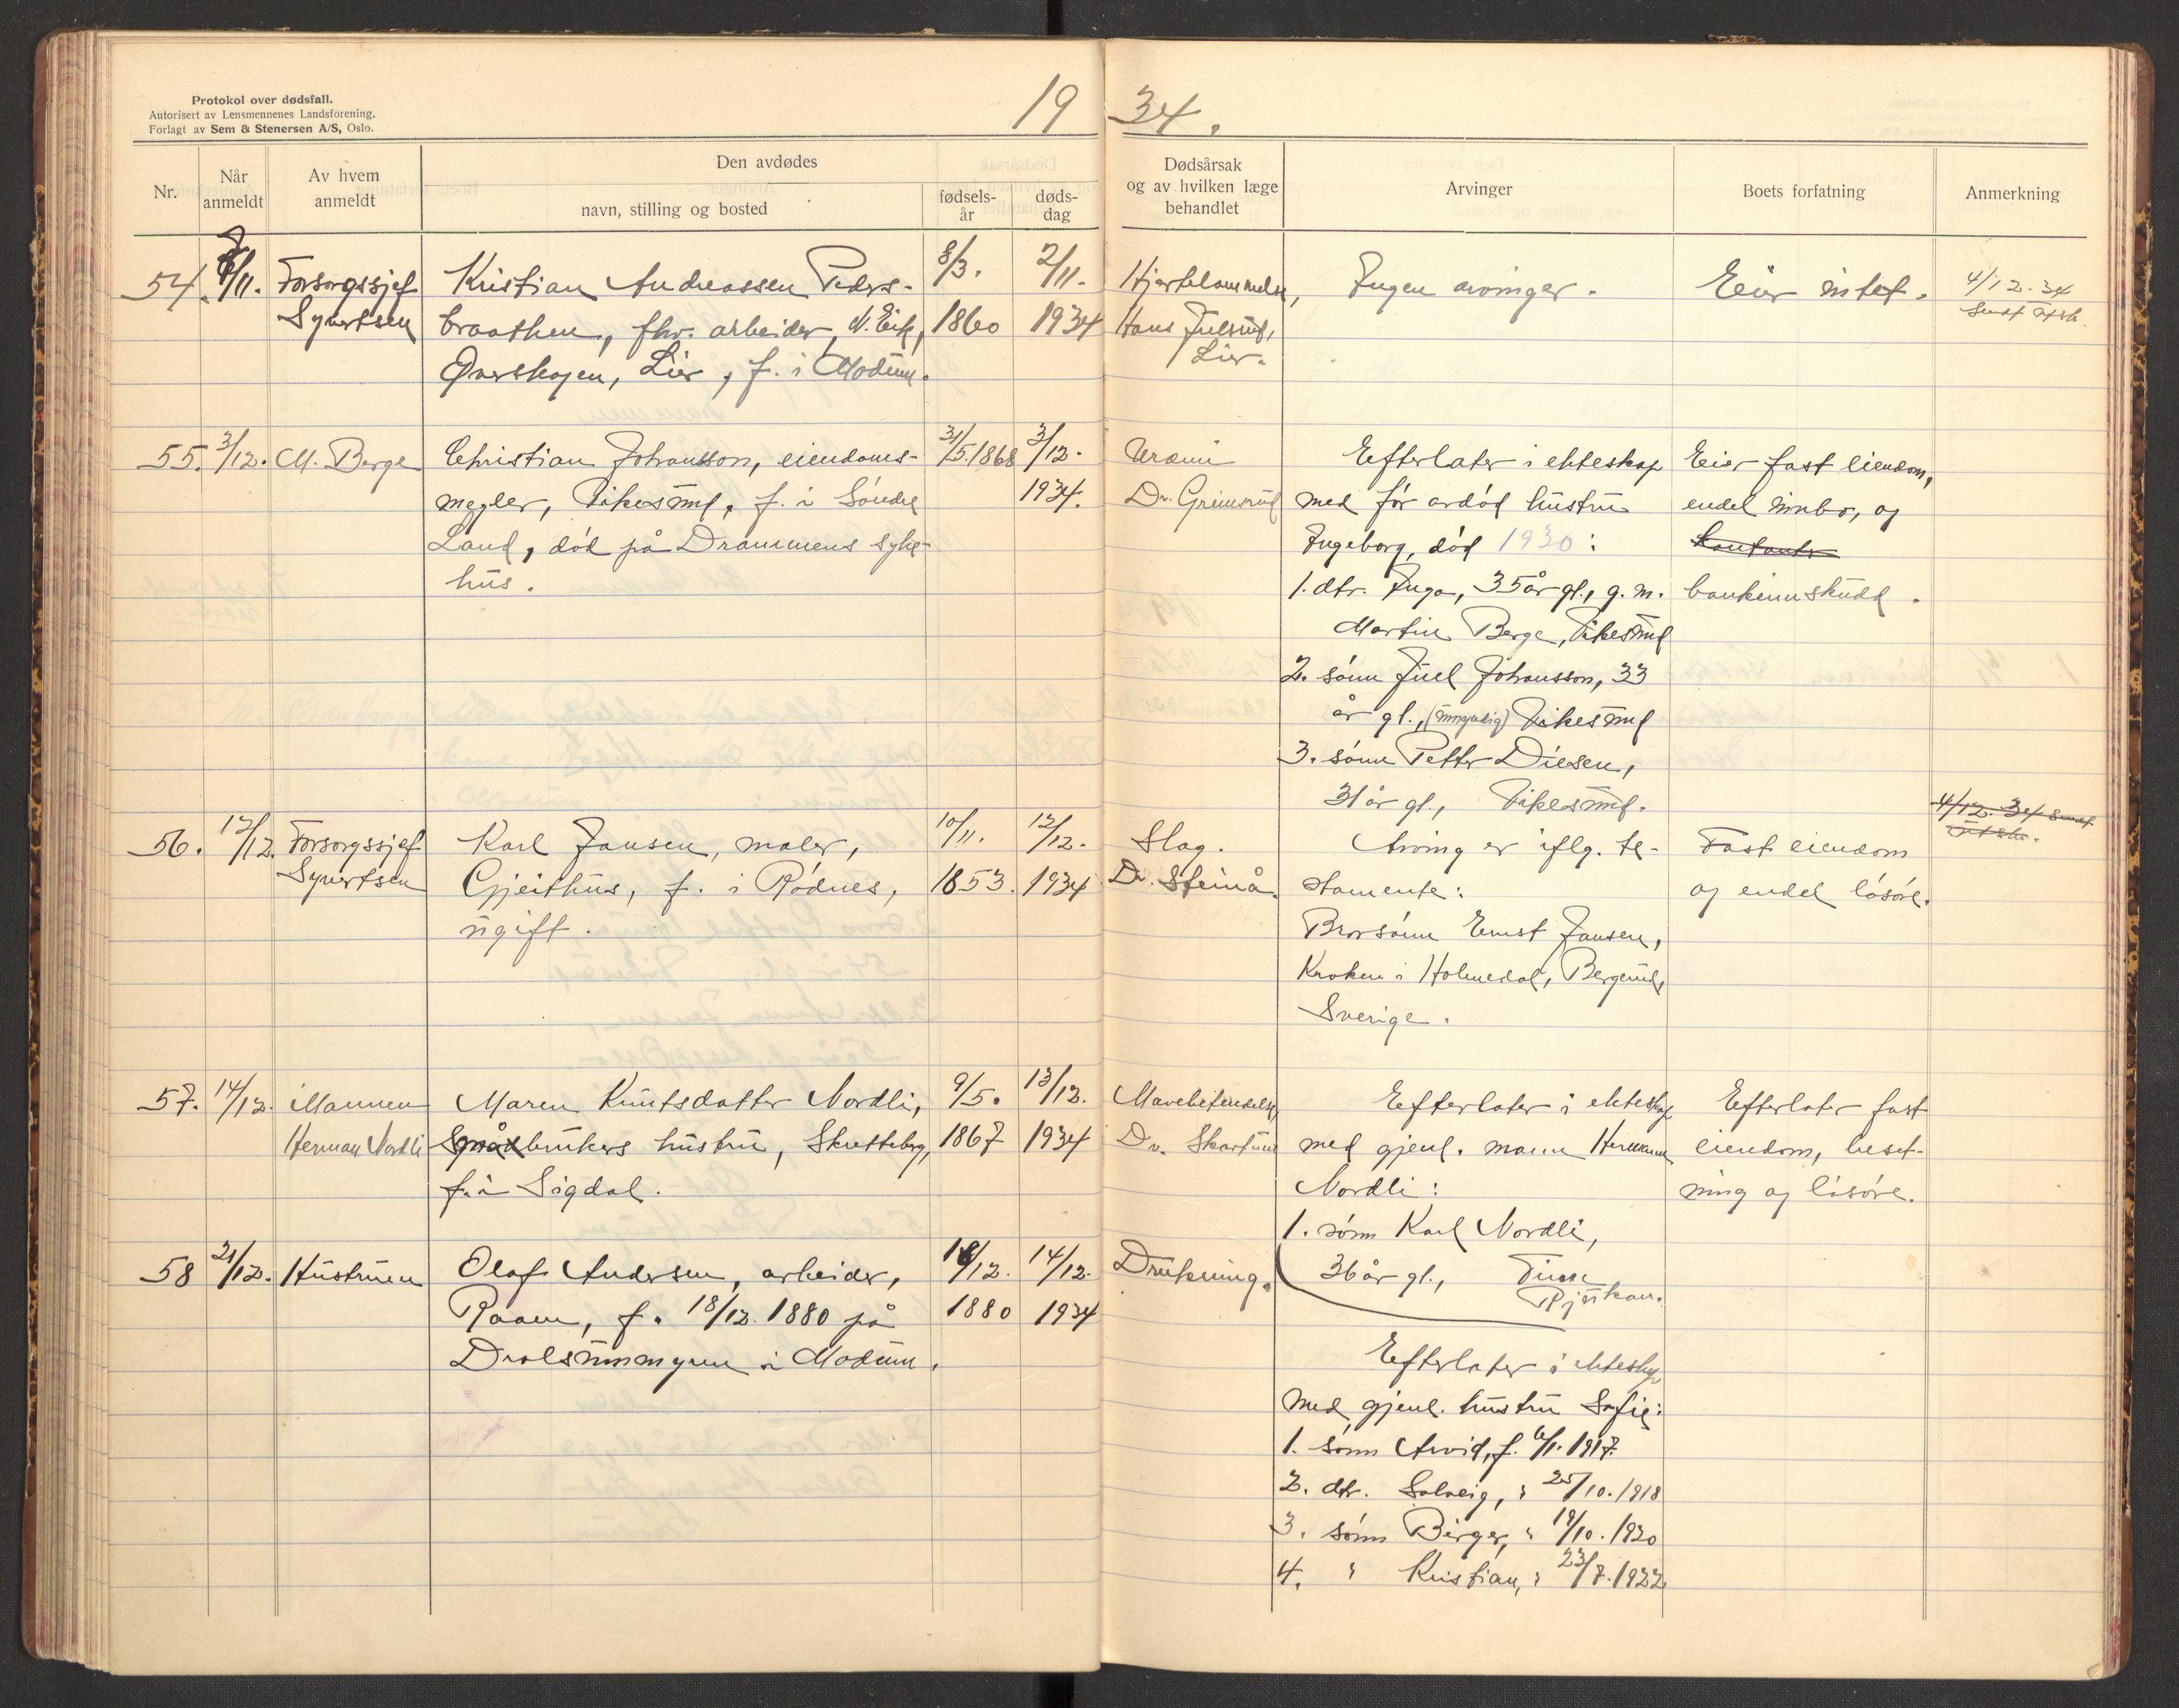 Protokol over dødsfall.
Autorisert av Lensmennenes Landsforening.
Forlagt av Sem & Stenersen A/S, Oslo.
19 34.
Nr.
Når anmeldt
Av hvem anmeldt
Den avdødes
navn, stilling og bosted
fødsels-år
døds-dag
Dødsårsak og av hvilken læge behandlet
Arvinger
Boets forfatning
Anmerkning
54. 7/11. Forsorgssjef Kristian Andreassen Peders- 8/3. 2/11. Hjertelammelse, Ingen arvinger. Eier intet. 4/12.34
Syvertsen braathen, fhv. arbeider, N. Eik, 1860 1934 Hans Julsrud, sendt
Øverskogen, Lier, f. i Modum. Lier.
55. 3/12. M. Berge Christian Johansson, eiendoms- 31/5.1868 3/12. Uræmi Efterlater i ekteskap Eier fast eiendom,
megler, Vikersund, f. i Søndre 1934. Dr. Grimsrud med før avdød hustru endel innbo, og
Land, død på Drammens syke- Ingeborg, død 1930: kontanter
hus. 1. dtr. Inga, 35 år gl., g. m. bankinnskudd.
Martin Berge, Vikesund
2. sønn Juel Johansson, 33
år gl., (umyndig) Vikesund
3. sønn Petter Diesen,
31 år gl., Vikesund.
4/12.34 sendt
56. 12/12. Forsorgssjef Karl Jansen, maler, 10/11. 12/12. Slag. Arving er iflg. te- Fast eiendom
Syvertsen Gjeithus, f. i Rødnes, 1853. 1934 Dr. Steinå. stamente: og endel løsøre.
ugift. Brorsønn Ernst Jansen,
Kroken i Holmedal,
Sverige.
57. 14/12. Mannen Maren Knutsdatter Nordli, 9/5. 13/12. Mavebetendelse, Efterlater i ekteskap Efterlater fast
Herman Nordli Småbrukers hustru, Skretteberg, 1867 1934 Dr. Skartum med gjenl. mann Herman eiendom, beset-
f. i Sigdal. Nordli: ning og løsøre.
1. sønn Karl Nordli,
58 21/12. Hustruen Olaf Andersen, arbeider, 18/12. 14/12. Drukning. 36 år gl., Tinn
Raaen, f. 18/12. 1880 på 1880 1934 Rjukan.
Drolsummyren i Modum. Efterlater i ekteskap
med gjenl. hustru Sofie:
1. sønn Arvid, f. 6/1. 1917.
2. dtr. Solveig, " 25/10. 1918
3. sønn Birger, " 19/10. 1920
4. " Kristian, " 23/7. 1922.